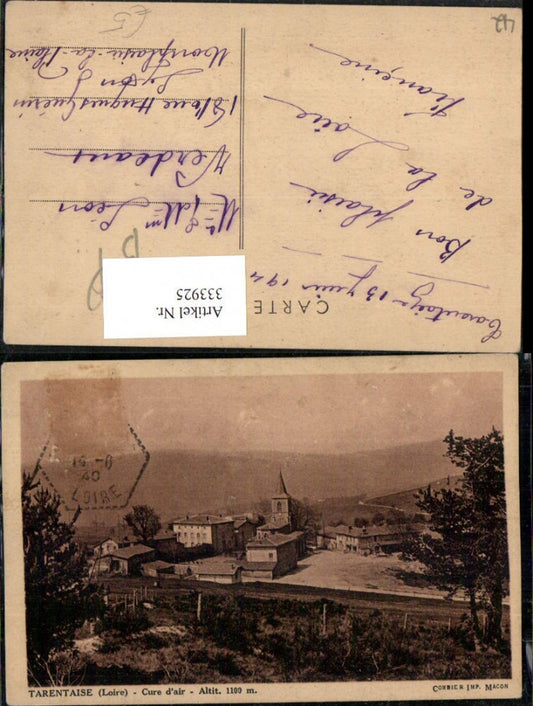 42
£5
Mr & Mme Léon
Verdeaux
18 Rue Hugues Guérin
Lyon
Monplaisir-la-Plaine
Tarentaise 13 juin 194
Bon plaisir
de la Loire
Françoise
CARTE
Artikel Nr.
333925
LOIRE
TARENTAISE (Loire) - Cure d'air - Altit. 1100 m.
COMBIER IMP. MACON